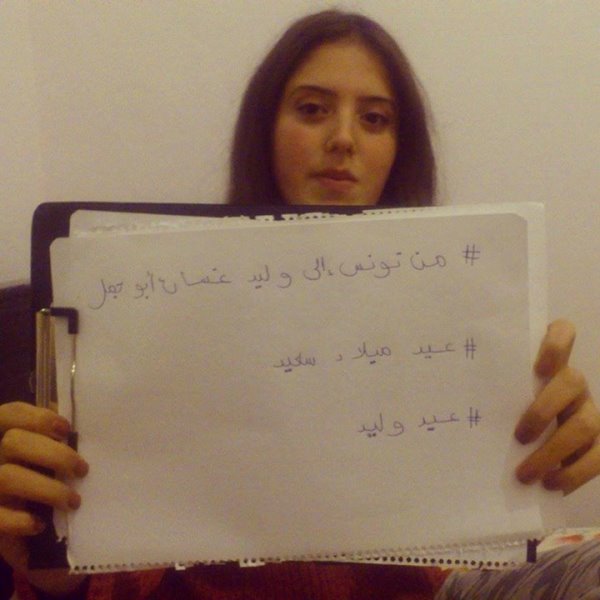 # من تونس إلى وليد غسان أبو جمل
# عيد ميلاد سعيد
# عيد وليد